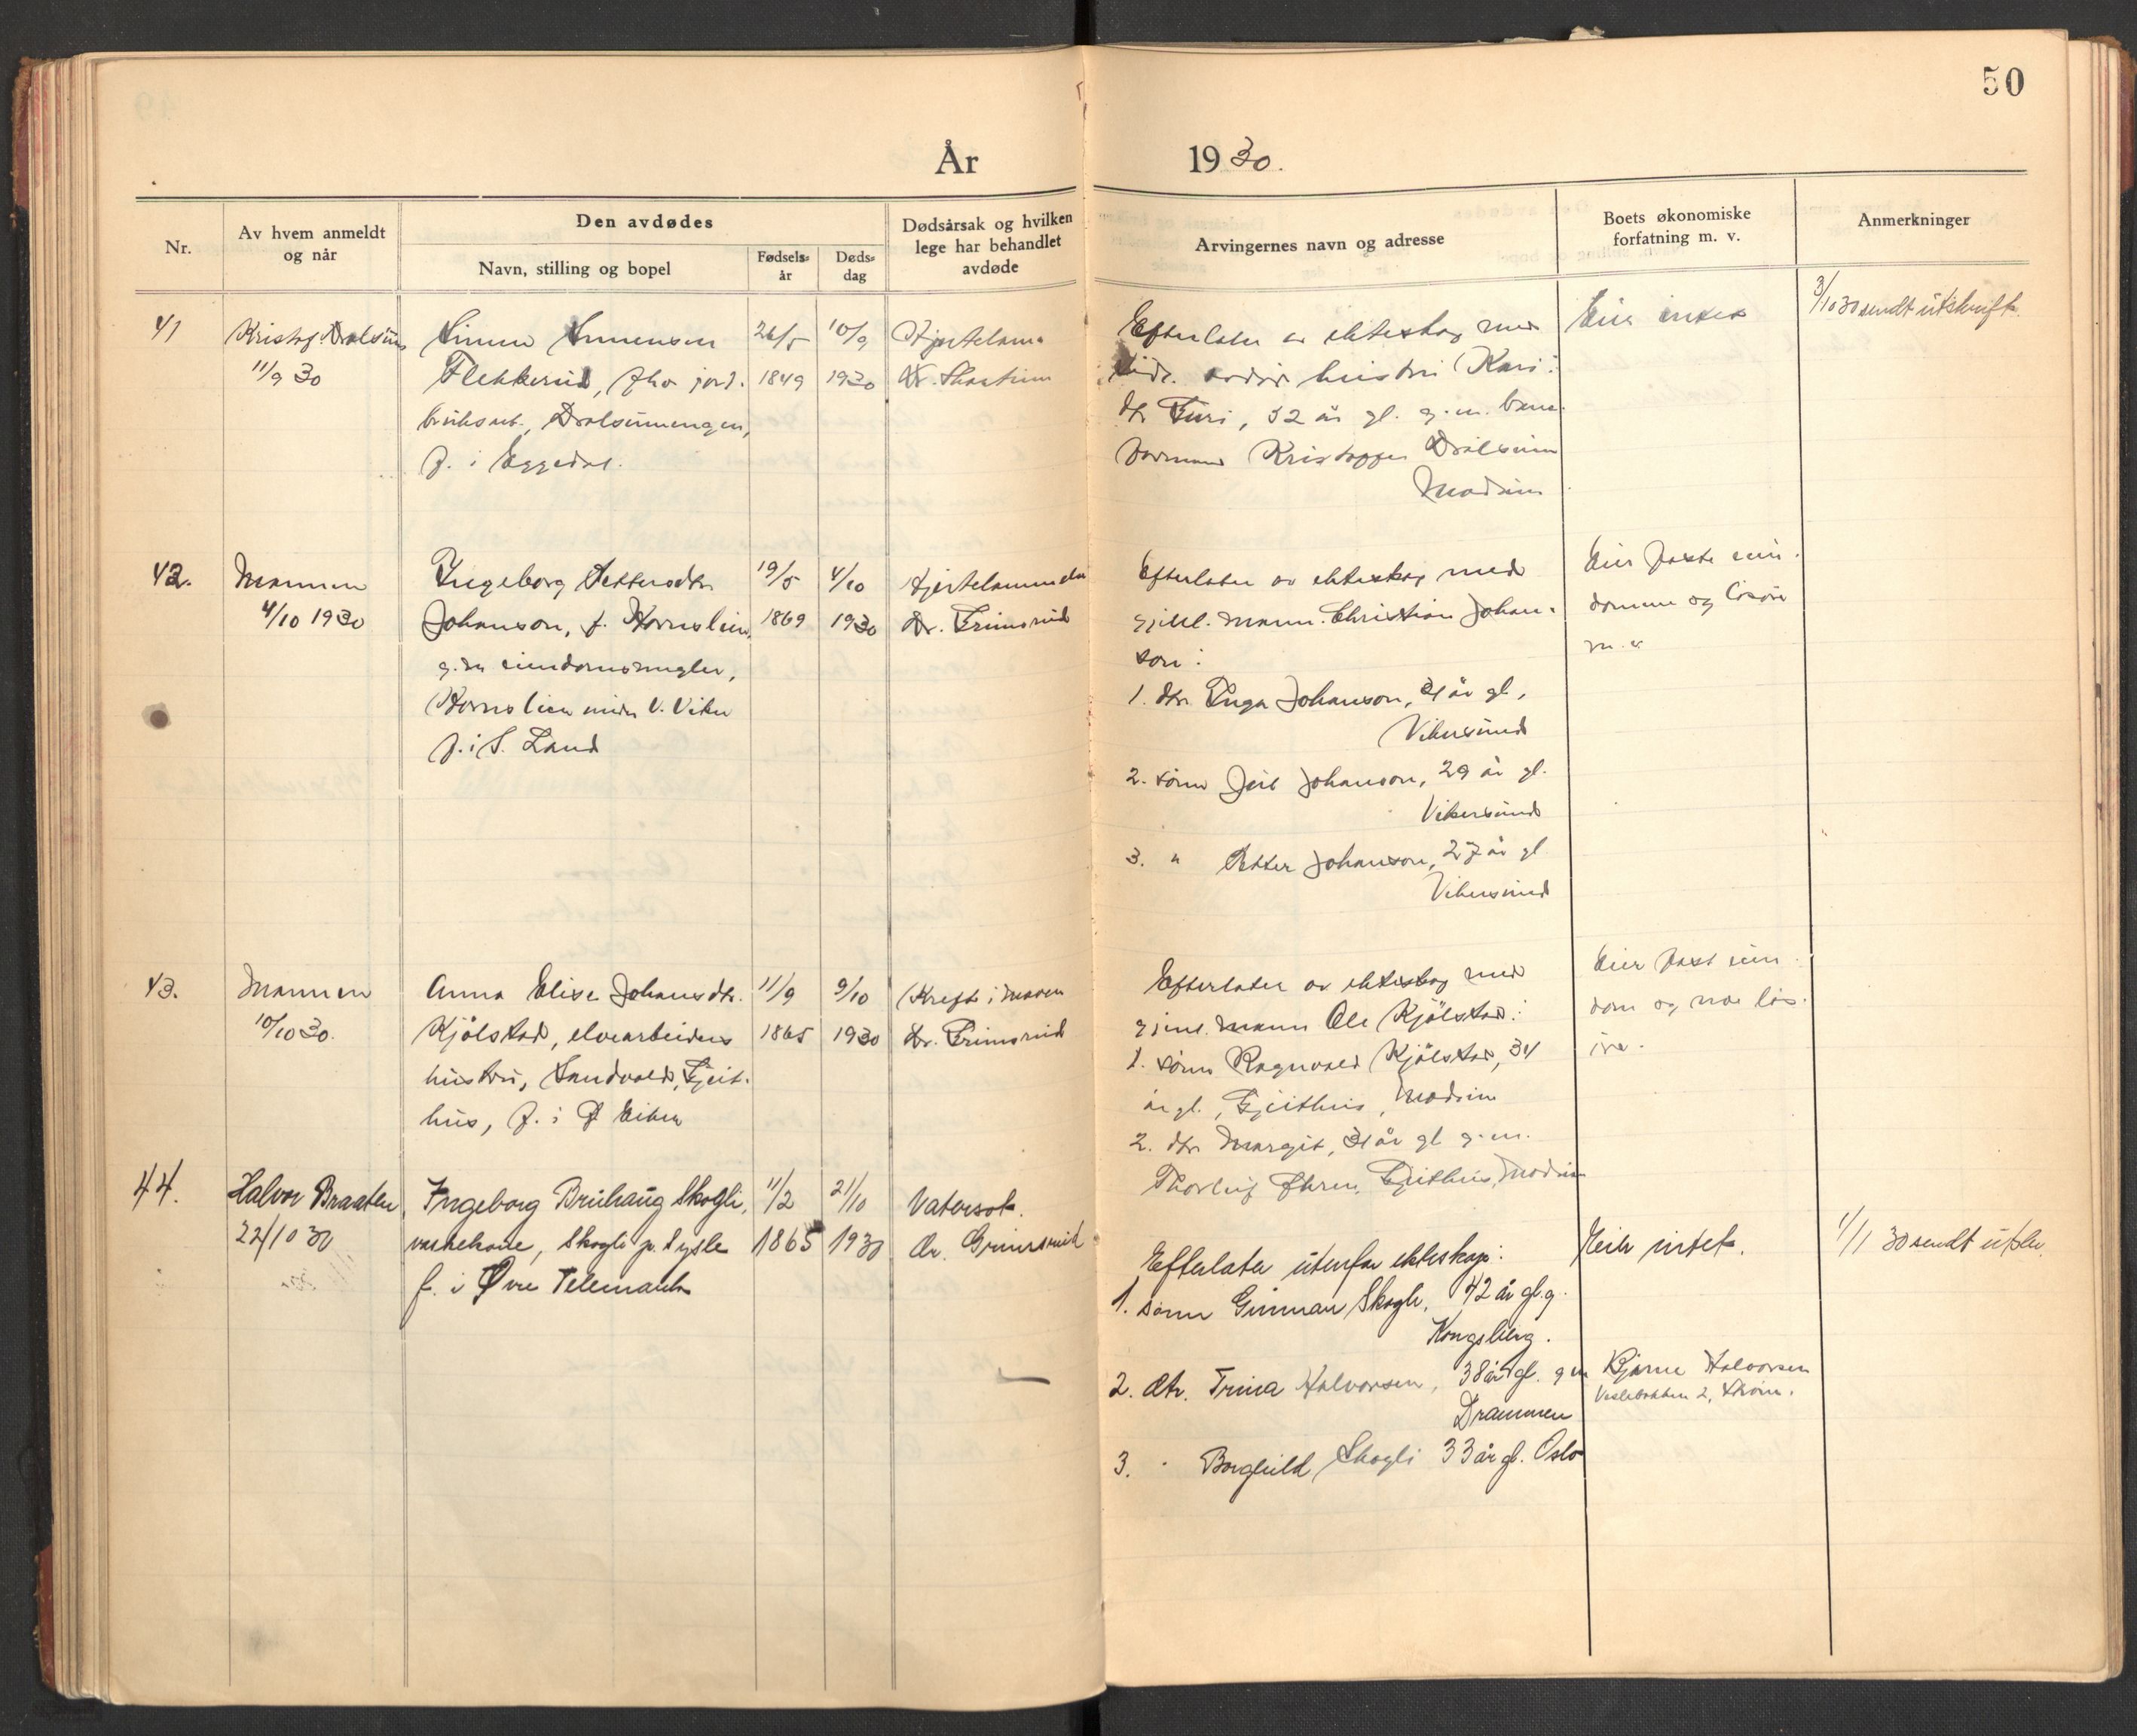 50
År 1930.
Nr.
Av hvem anmeldt
og når
Den avdødes
Navn, stilling og bopel
Fødsels-
år
Døds-
dag
Dødsårsak og hvilken
lege har behandlet
avdøde
Arvingernes navn og adresse
Boets økonomiske
forfatning m. v.
Anmerkninger
41
Kristof. Drolsum
11/9 30
Simen Simensen
Flekkerud, fhv. jord-
bruksarb., Drolsumengen,
f. i Eggedal.
26/5
1849
10/9
1930
Hjertelam.
Dr. Thorstein
Efterlater av ekteskap med
tidl. avdøde hustru Kari:
dtr Turi, 52 år gl. g.m. bane-
formand Kristoffer Drolsum
Modum
Eier intet
3/10 30 sendt utskrift.
42.
Mannen
4/10 1930
Ingeborg Pettersdtr.
Johanson, f. Hornslien,
g.m. eiendomsmegler,
Hornslien nedre V. Viker
f. i S. Land
19/5
1869
4/10
1930
Hjertelammelse
Dr. Grimsrud
Efterlater av ekteskap med
gjenl. mann Christian Johan-
son:
1. dtr. Inga Johanson, 31 år gl,
Vikersund
2. sønn Johanson, 29 år gl.
Vikersund
3. " Petter Johanson, 27 år gl
Vikersund
Eier faste eien-
domme og løsøre
m.v.
43.
Mannen
10/10 30.
Anna Elise Johansdtr.
Kjölstad, elvearbeiders
hustru, Sandvold, Gjeit-
hus, f. i Ø Eiker
11/9
1865
9/10
1930
Kreft i maven
Dr. Grimsrud
Efterlater av ekteskap med
gjenl. mann Ole Kjölstad:
1. sönn Ragnvald Kjölstad, 34
år gl., Gjeithus, Modum
2. dtr Margit, 31 år gl g.m.
Thorleif Gjeithus, Modum
Eier fast eien-
dom og noe løs-
øre.
44.
Halvor Braaten
22/10 30
Ingeborg Bruhaug Skogli,
vaskekone, Skogli p. Sysle
f. i Øvre Telemark
11/2
1865
21/10
1930
Vatersot.
Dr. Grimsrud
Efterlater utenfor ekteskap:
1. sønn Gunnar Skogli, 42 år gl. g.
Kongsberg.
2. dtr. Trina Halvorsen, 38 år gl. gm
Drammen
3. " Borghild Skogli 33 år gl. Oslo
Eier intet.
Bjarne Halvorsen
Veslebakken 2, Strøm.
1/11 30 sendt utskr.